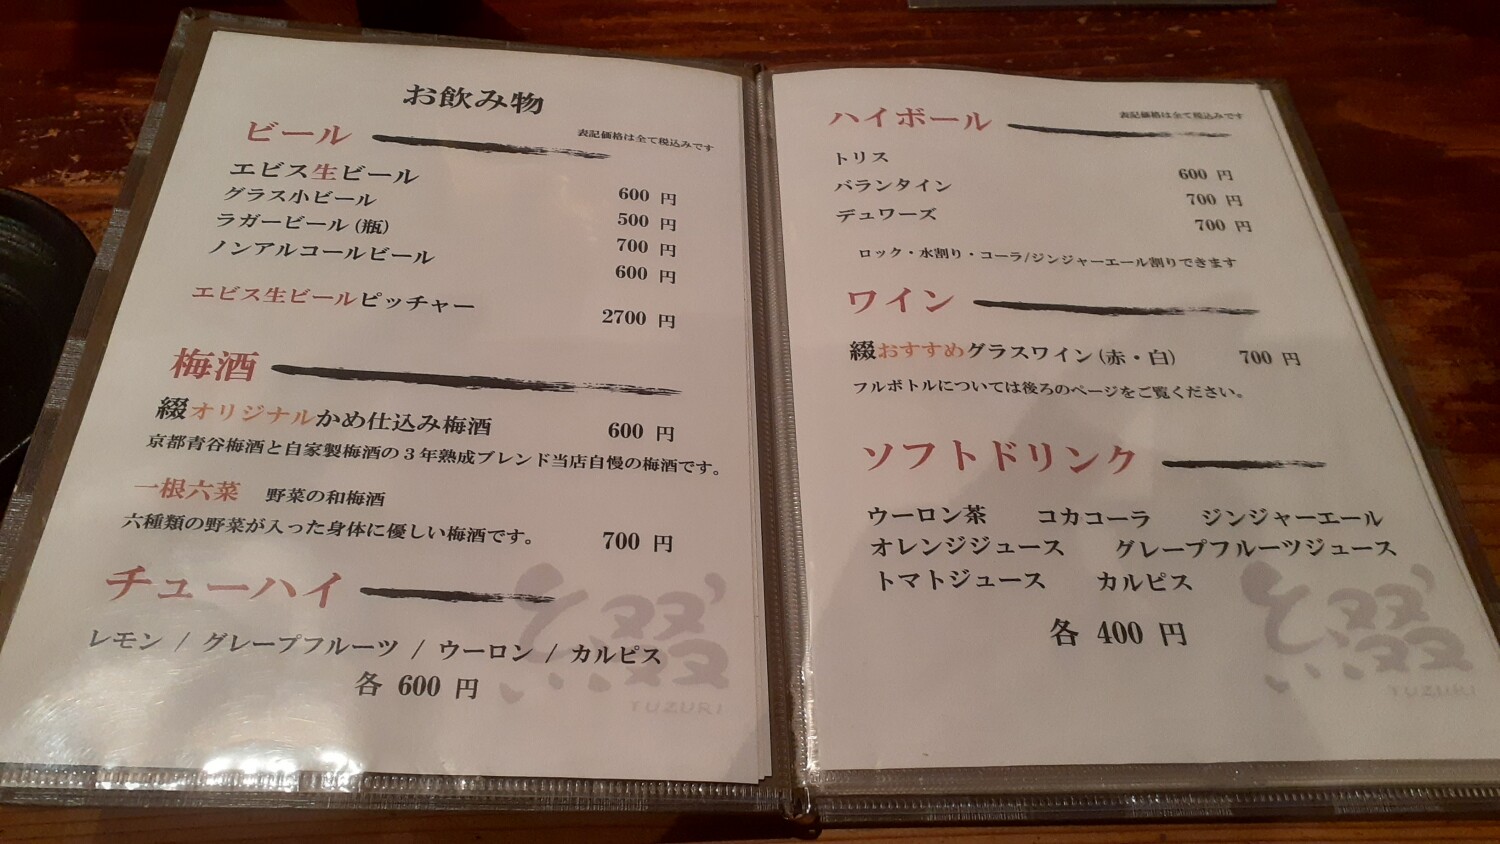 お飲み物
ビール
表記価格は全て税込みです
エビス生ビール 600 円
グラス小ビール 500 円
ラガービール(瓶) 700 円
ノンアルコールビール 600 円
エビス生ビールピッチャー 2700 円
梅酒
綴オリジナルかめ仕込み梅酒 600 円
京都青谷梅酒と自家製梅酒の3年熟成ブレンド当店自慢の梅酒です。
一根六菜 野菜の和梅酒
六種類の野菜が入った身体に優しい梅酒です。 700 円
チューハイ
レモン / グレープフルーツ / ウーロン / カルピス
各 600 円
綴
TUZURI
ハイボール
表記価格は全て税込みです
トリス 600 円
バランタイン 700 円
デュワーズ 700 円
ロック・水割り・コーラ/ジンジャーエール割りできます
ワイン
綴おすすめグラスワイン(赤・白) 700 円
フルボトルについては後ろのページをご覧ください。
ソフトドリンク
ウーロン茶 コカコーラ ジンジャーエール
オレンジジュース グレープフルーツジュース
トマトジュース カルピス
各 400 円
綴
TUZURI